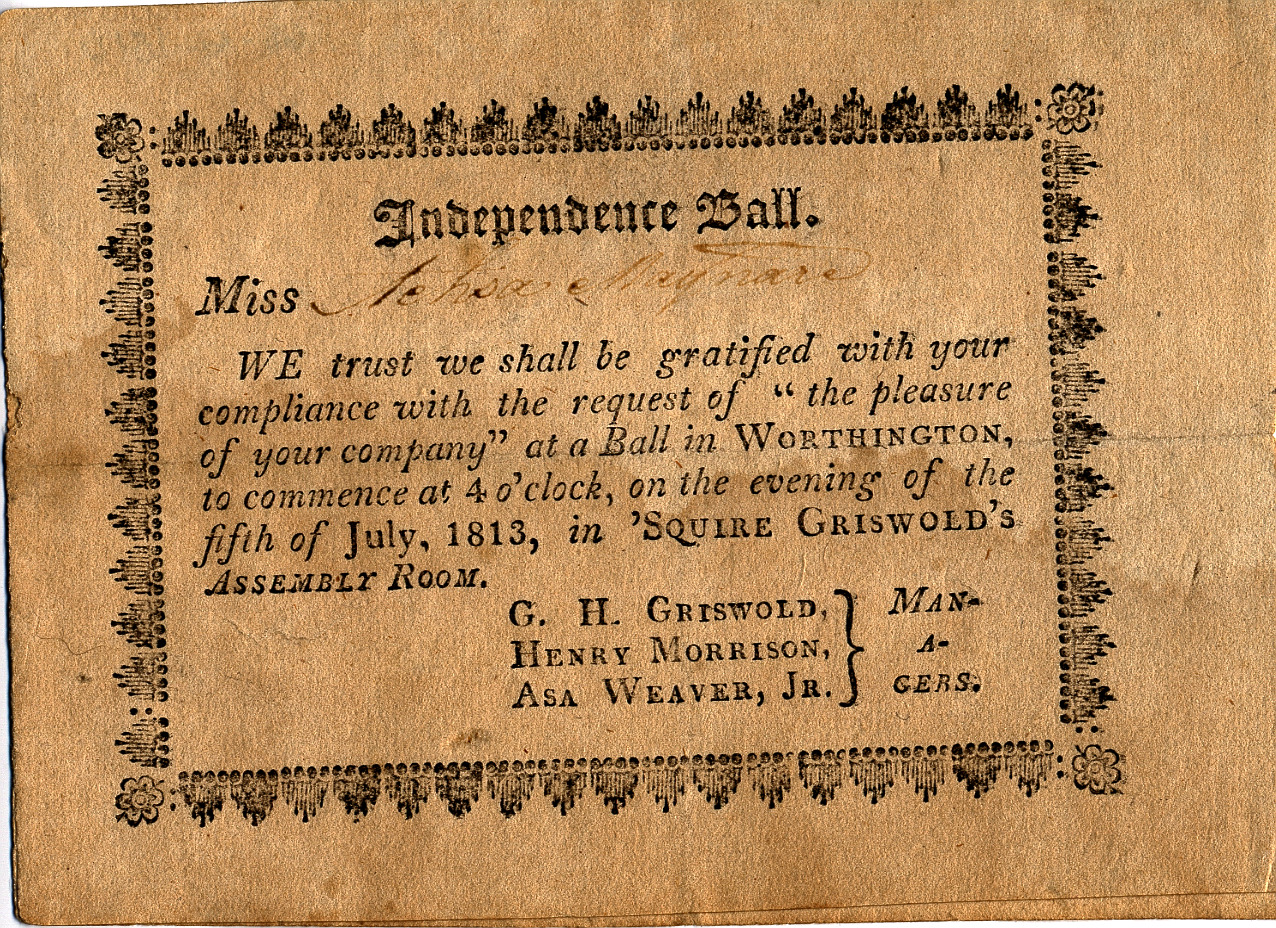 Independence Ball.
Miss Achsa Maynard
WE trust we shall be gratified with your
compliance with the request of “ the pleasure
of your company” at a Ball in WORTHINGTON,
to commence at 4 o'clock, on the evening of the
fifth of July, 1813, in 'SQUIRE GRISWOLD'S
ASSEMBLY ROOM.
G. H. GRISWOLD, } MAN-
HENRY MORRISON, A-
ASA WEAVER, JR. GERS.